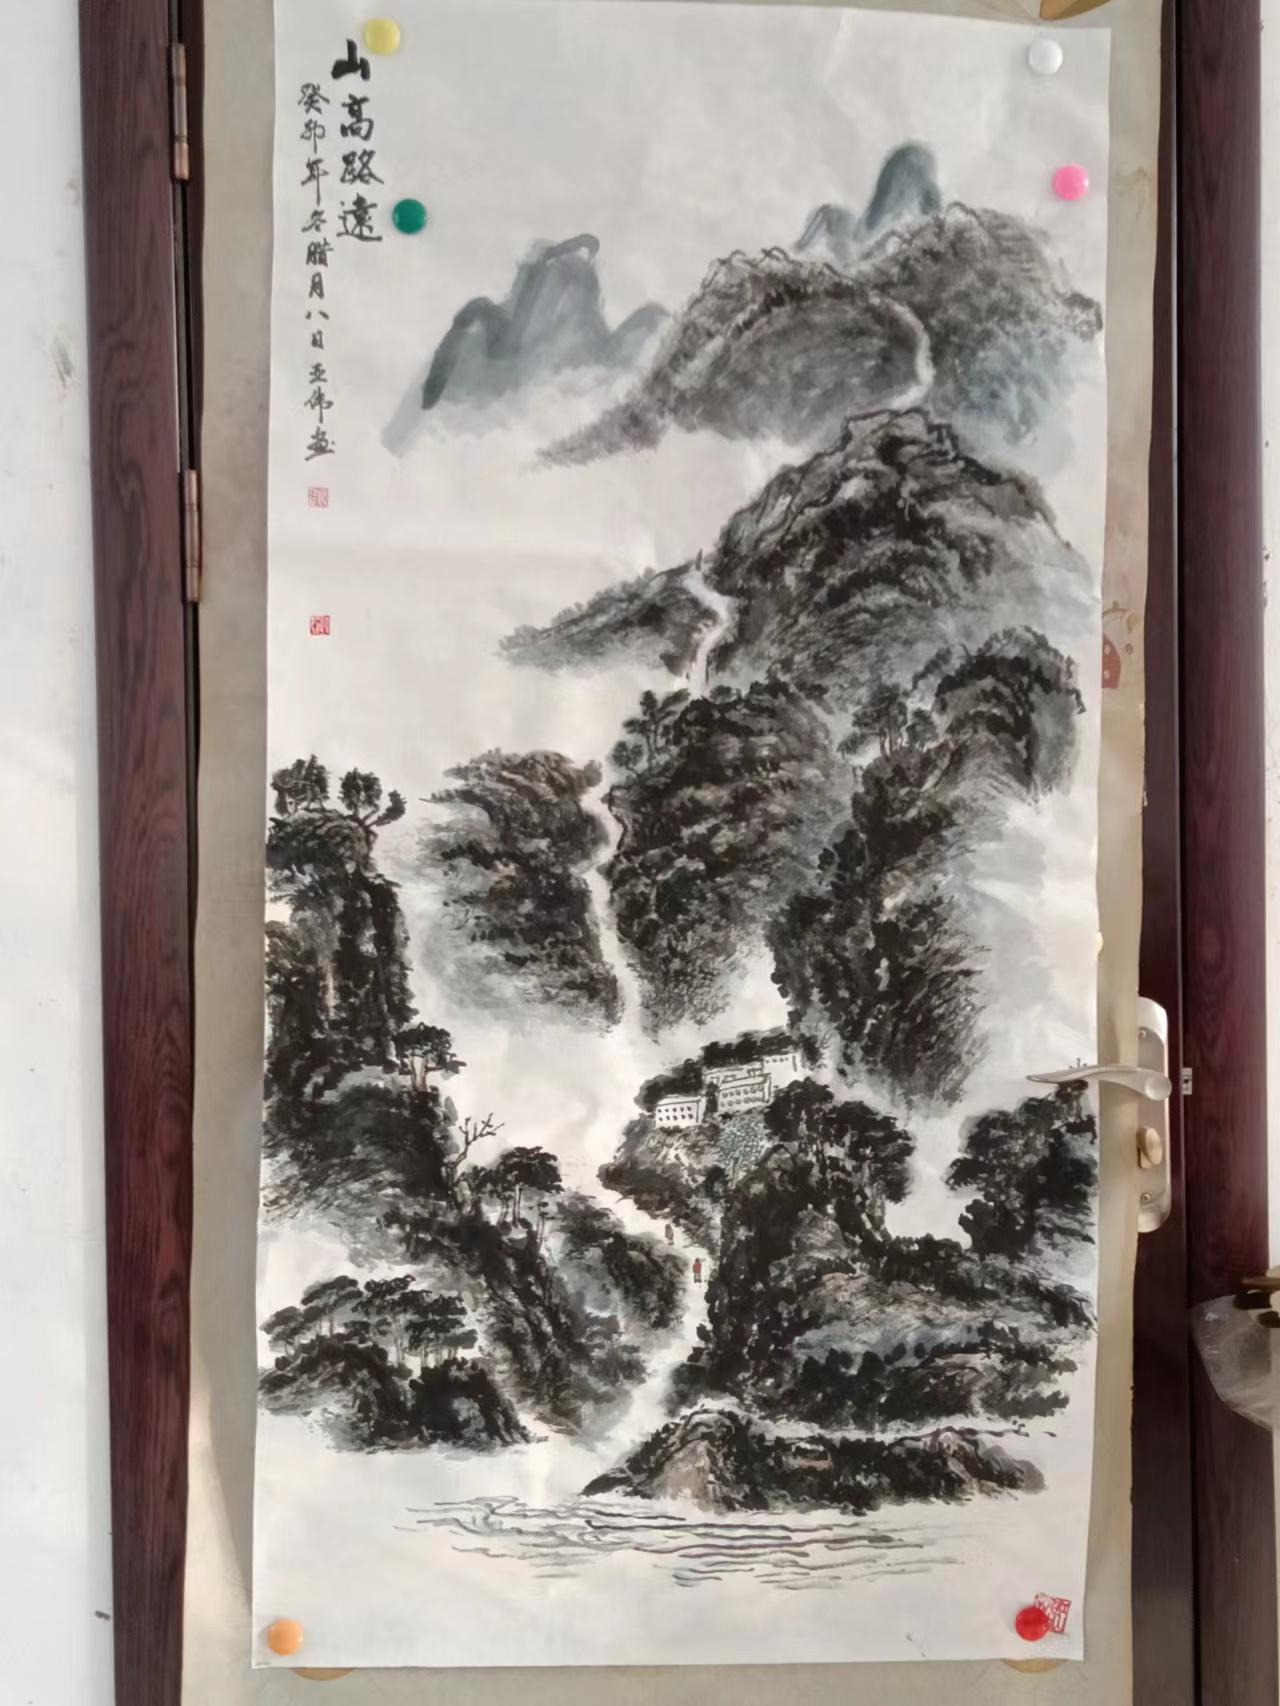 山高路遠
癸卯年冬腊月八日亚伟画